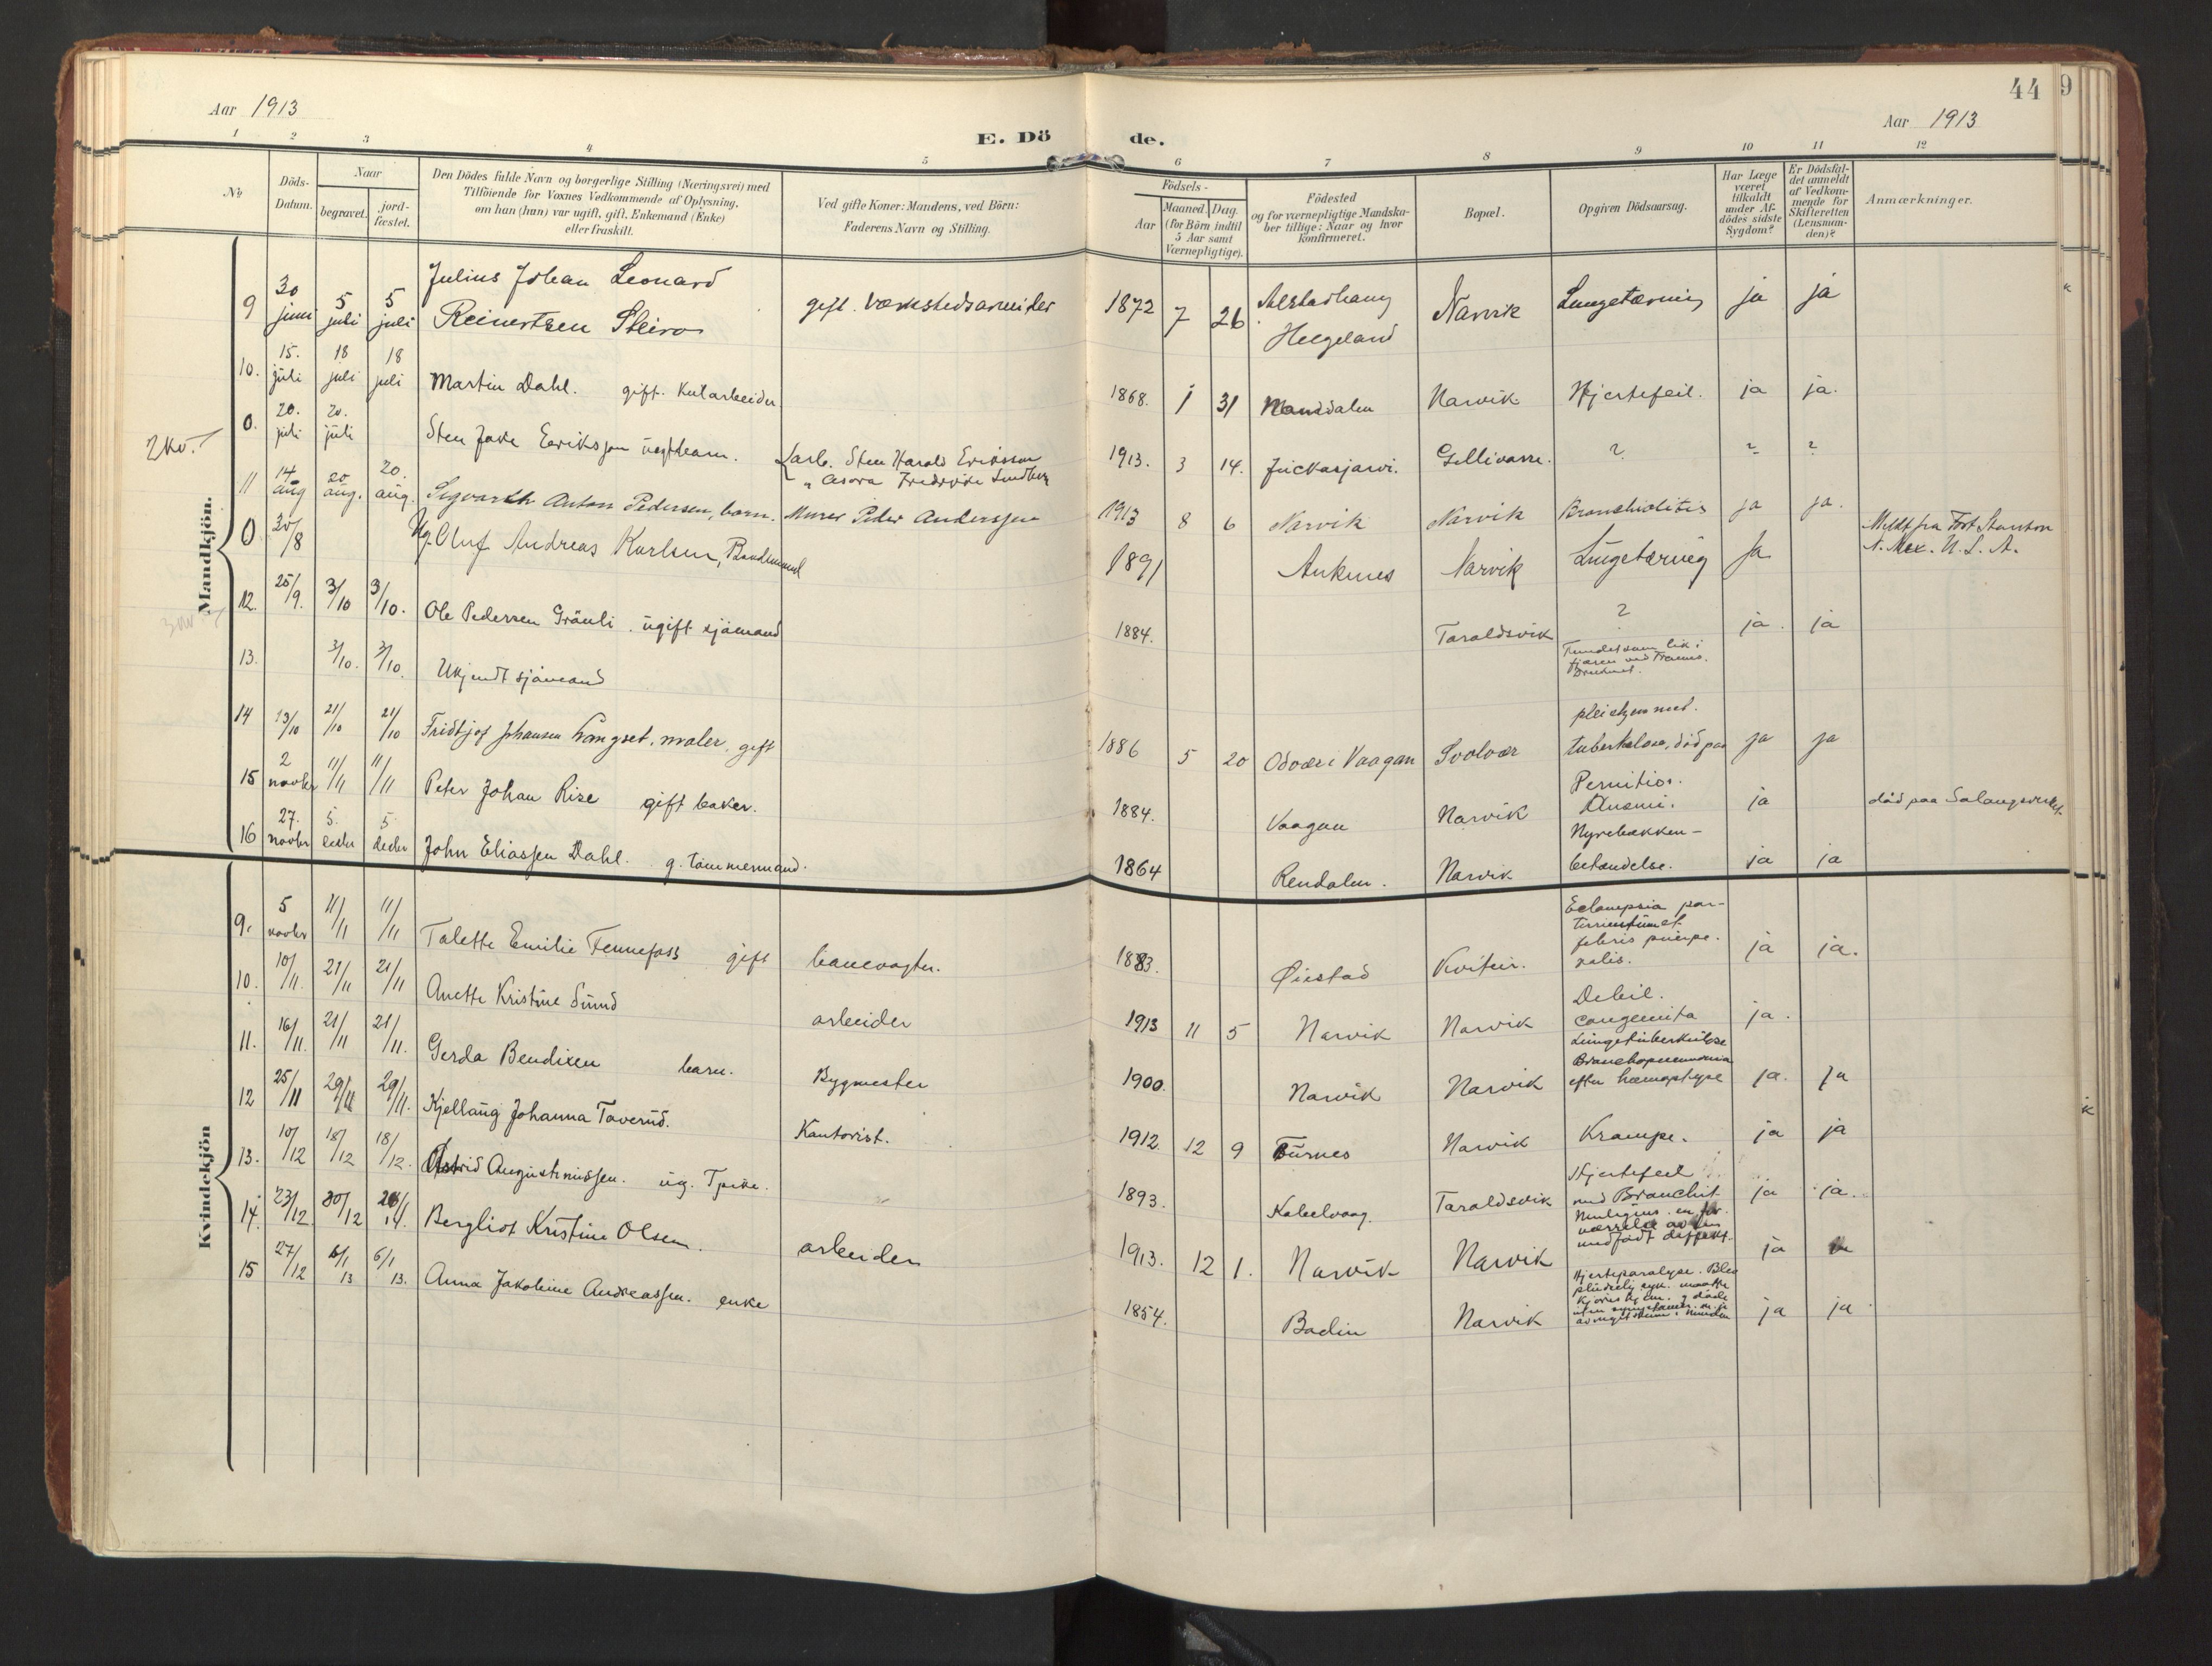 44
9
Aar 1913
Aar 1913
E. Dö de.
1 2 3 4 5 6 7 8 9 10 11 12
No
Döds-Datum.
Naar
begravet.
jord-fæstet.
Den Dödes fulde Navn og borgerlige Stilling (Næringsvei) med
Tilföiende for Voxnes Vedkommende af Oplysning,
om han (hun) var ugift, gift, Enkemand (Enke)
eller fraskilt.
Ved gifte Koner: Mandens, ved Börn:
Faderens Navn og Stilling.
Födsels-
Aar
Maaned. Dag.
(for Börn indtil
5 Aar samt
Værnepligtige).
Födested
og for værnepligtige Mandska-
ber tillige: Naar og hvor
konfirmeret.
Bopæl.
Opgiven Dödsaarsag.
Har Læge
været
tilkaldt
under Af-
dödes sidste
Sygdom?
Er Dödsfal-
det anmeldt
af Vedkom-
mende for
Skifteretten
(Lensman-
den)?
Anmærkninger.
Mandkjön.
2 kv.
9 30 juni 5 juli 5 juli Julius Johan Leonard
Reinertsen Steiro gift. Værkstedsarbeider 1872 7 26 Alstadhaug
Helgeland Narvik Lungetæring ja ja
10. 15. juli 18 juli 18 juli Martin Dahl. gift. Kularbeider 1868. 1 31 Manddalen Narvik Hjertefeil. ja ja.
0. 20. juli 20. juli Sten Jake Eeriksson 1913. 3 14. Juckasjarvi. Gellivarre. ? ? ?
Sten Harald Eriksson
11 14 aug 20 aug. 20. aug. Sigvarth Anton Pedersen, barn. Murer Peder Anderssen 1913 8 6 Narvik Narvik Bronchiolitis ja ja.
0 30/8 Ug. Oluf Andreas Karlsen, 1891 Ankenes Narvik Lungetæring ja Meldt fra Fort Stanton
N. Mex. U. S. A.
12. 25/9. 3/10 3/10. Ole Pedersen Gränli. ugift sjömand 1884. Taraldsvik ? ja. ja
13. 3/10. 3/10. Ukjendt sjömand Fundet som lik i
fjæren ved
14 13/10 21/10 21/10 Fridtjof Johansen Kongset, maler, gift 1886 5 20 Vaagan Svolvær
tuberkelose, död paa ja ja
15 2 novbr 11/11 11/11 Peter Johan Rise gift baker. 1884. Vaagan Narvik Pernitios.
Anæmi. ja död paa Salangsverket.
16 27. novbr 5. decbr 5 decbr John Eliassen Dahl. g. tömmermand. 1864 Rendalen. Narvik Nyrebækken-
betændelse. ja ja
Kvindekjön
9. 5 novbr 11/11 11/11 Talette Emilie Fennefoss gift banevogter. 1883. Øiestad Eclampsia par-
turientium et
febris puerpe-
ralis. ja ja.
10. 10/11. 21/11 21/11 Anette Kristine Sund arbeider 1913 11 5 Narvik Narvik Debil.
congenita ja.
11. 16/11. 21/11 21/11. Gerda Bendixen barn. Bygmester 1900. Narvik Narvik Lungetuberkulose
Bronchopneumonia
efter hæmoptyse ja. ja
12 25/11 29/11 29/11. Kjellaug Johanna Taverud. Kontorist. 1912. 12 9 Narvik Krampe. ja ja
13. 10/12 18/12 18/12. Astrid Augustinussen. ug. Tpike. 1893. Kabelvaag. Taraldsvik Hjertefeil
med Bronchit. ja ja.
14. 23/12. 30/12 Bergliot Kristine Olsen. arbeider 1913. 12 1. Narvik Narvik Muligens en for-
værrelse av
medfödt defekt. ja
15 27/12 6/1 13 6/1 13. Anna Jakobine Andreassen. enke 1854. Bodin Narvik Hjerteparalyse. Blev
pludselig syk. maatte
kjöres hjem. ja ja